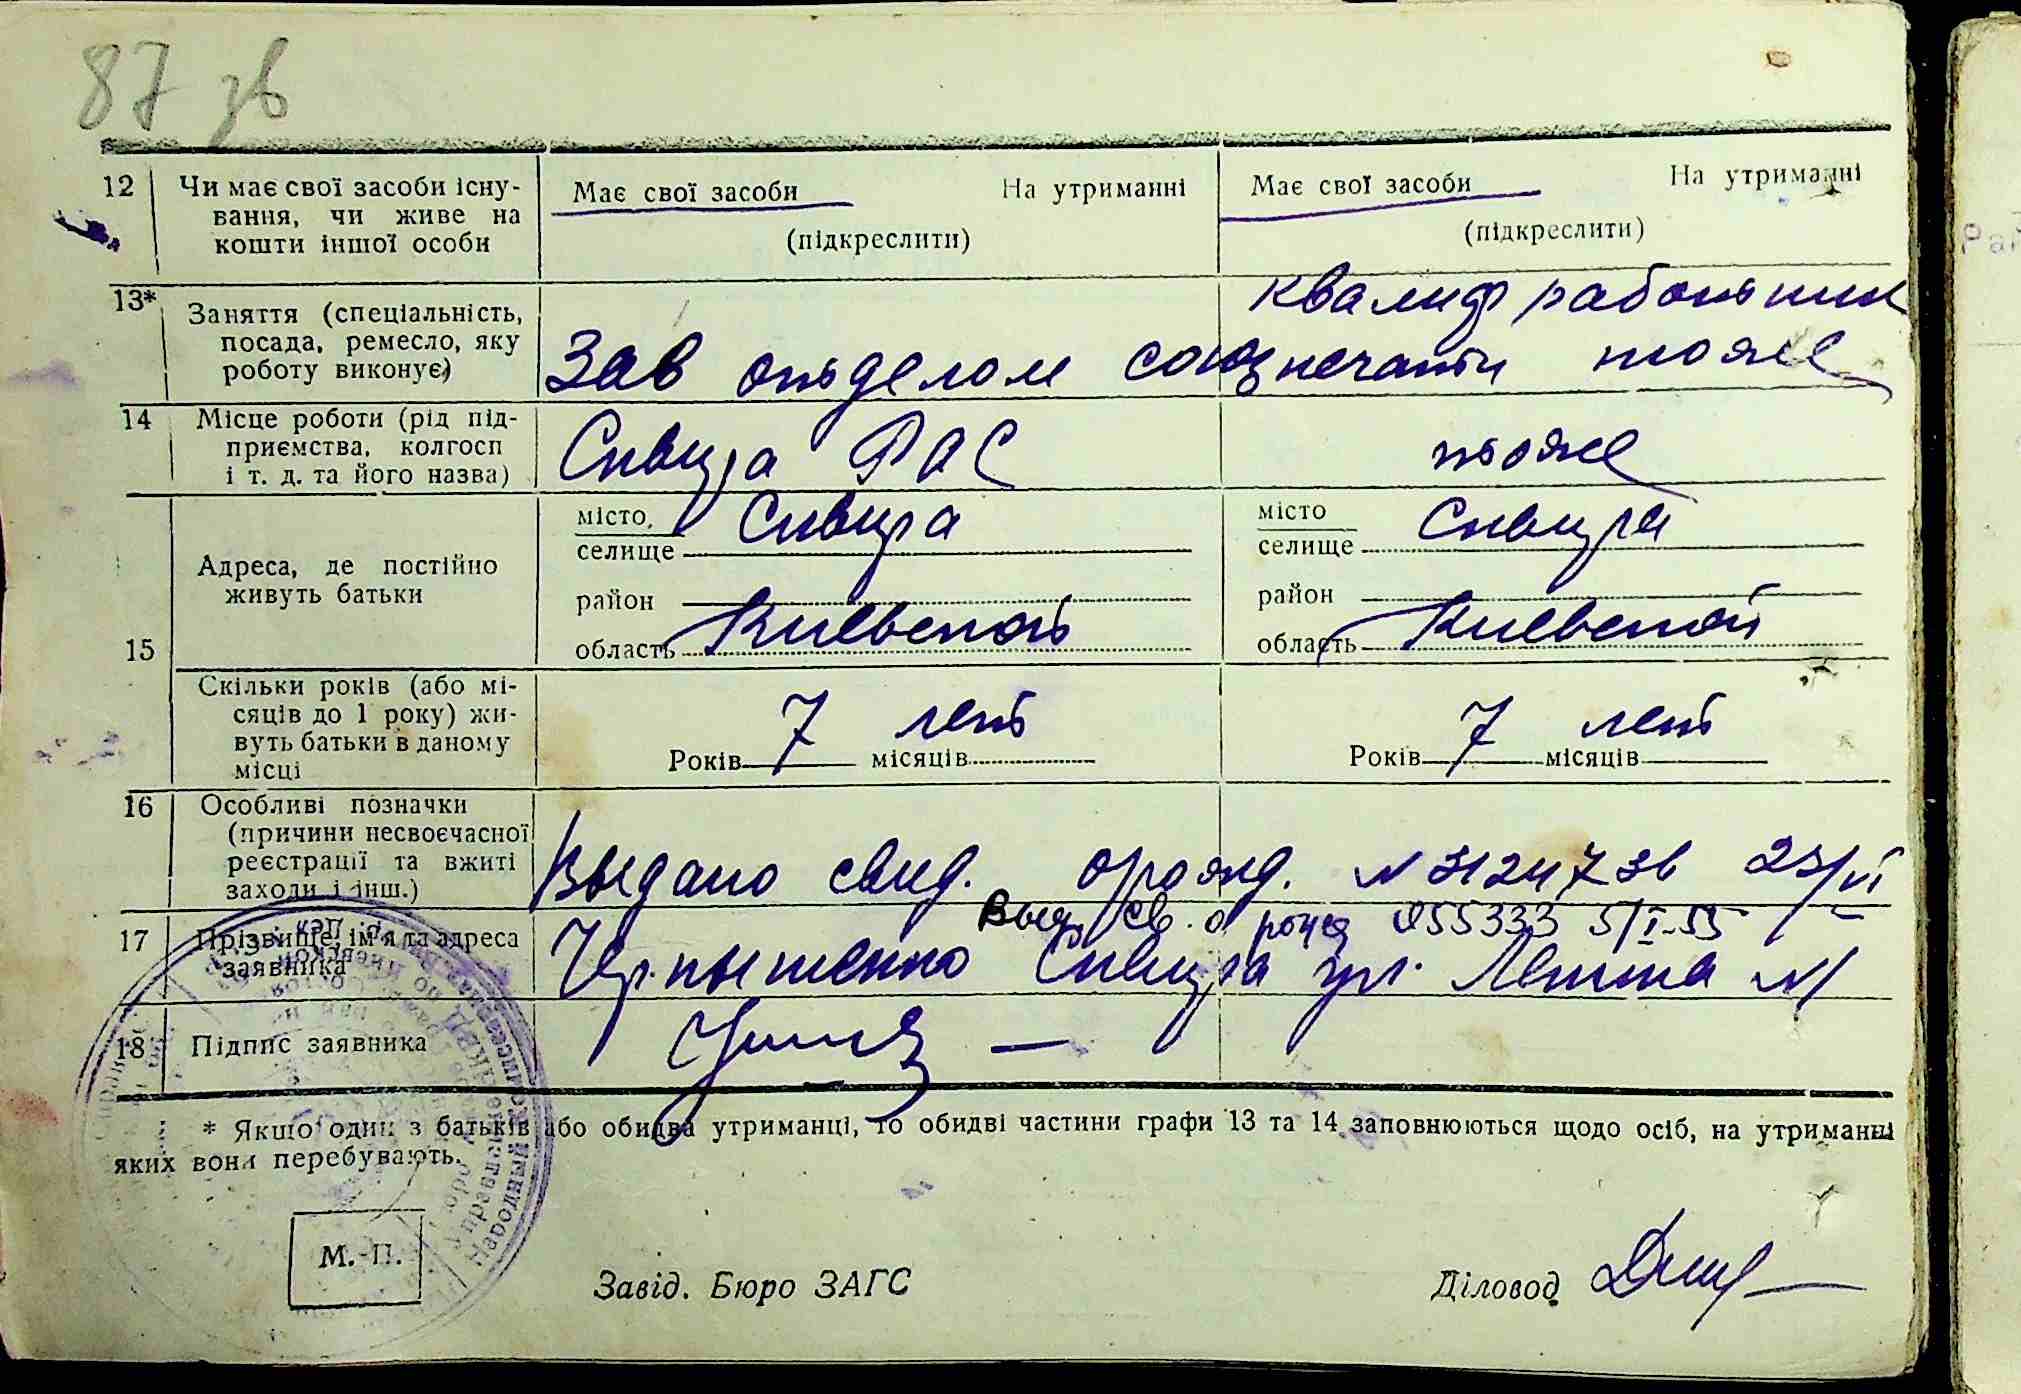 87 зв
12 Чи має свої засоби існу-
вання, чи живе на
кошти іншої особи
Має свої засоби На утриманні
(підкреслити)
Має свої засоби На утриманні
(підкреслити)
13* Заняття (спеціальність,
посада, ремесло, яку
роботу виконує)
квалиф работник
Зав отделом союзпечати тоже
14 Місце роботи (рід під-
приємства, колгосп
і т. д. та його назва)
Сквира РАС
тоже
15
Адреса, де постійно
живуть батьки
місто, Сквира
селище
район
область Киевской
місто Сквира
селище
район
область Киевской
Скільки років (або мі-
сяців до 1 року) жи-
вуть батьки в даному
місці
Років 7 лет місяців
Років 7 лет місяців
16 Особливі позначки
(причини несвоєчасної
реєстрації та вжиті
заходи і інш.)
Выдано свид. о рожд. N 312473 23/VI
Выд св. о рожд 055333 5/I-55
17 Прізвище, ім'я та адреса
заявника
Сквира ул. Ленина
18 Підпис заявника
* Якщо один з батьків або обидва утриманці, то обидві частини графи 13 та 14 заповнюються щодо осіб, на утриманні
яких вони перебувають.
М.-П.
Завід. Бюро ЗАГС
Діловод